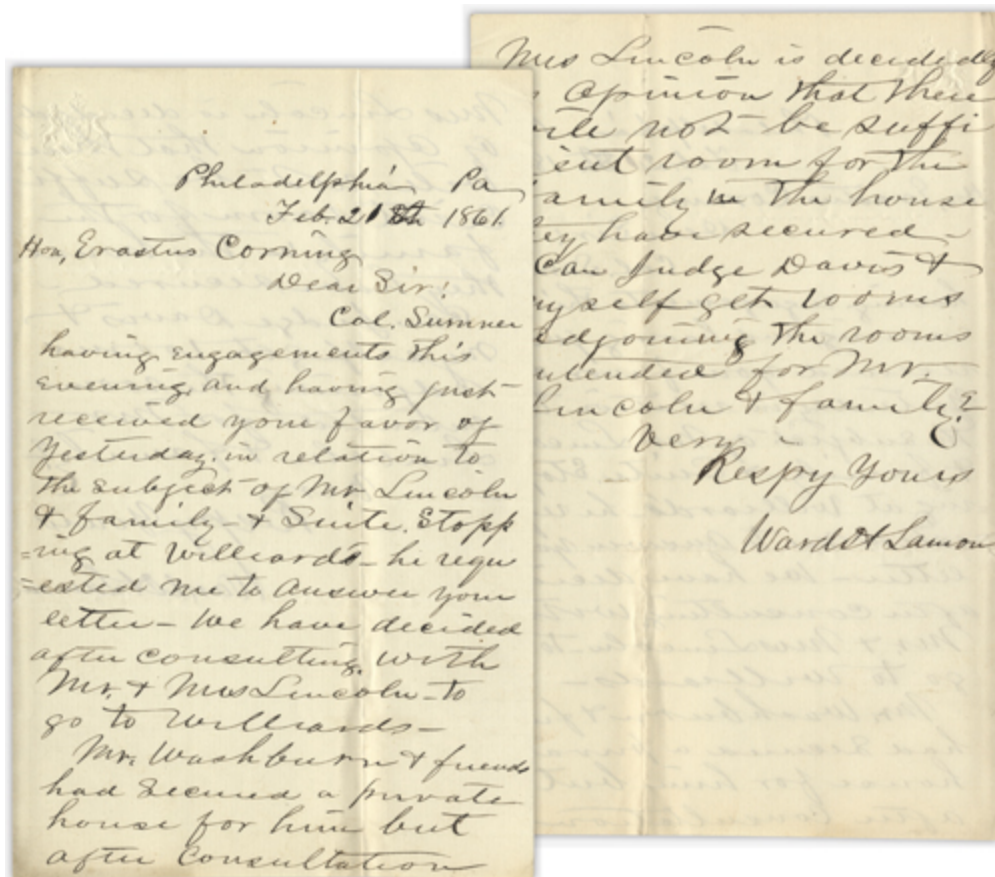 Philadelphia Pa
Feb. 21 1861.
Hon, Erastus Corning
Dear Sir!
Col. Sumner
having engagements this
evening, and having just
received your favor of
yesterday, in relation to
the subject of Mr Lincoln
& family - & Suite, Stopp
=ing at Williards - he requ
=ested me to answer your
letter - We have decided
after consulting, with
Mr. & Mrs Lincoln - to
go to Williards -
Mr. Washburn & friends
had secured a private
house for him but
after Consultation
Mrs Lincoln is decidedly
opinion that there
not be suffi
room for the
in the house
have secured -
Can Judge Davis &
get rooms
the rooms
for Mr.
Lincoln & family?
Very
Respy Yours
Ward H Lamon